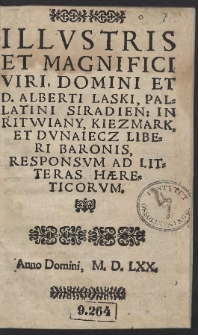 ILLVSTRIS
ET MAGNIFICI
VIRI, DOMINI ET
D. ALBERTI LASKI, PAL-
LATINI SIRADIEN: IN
RITWIANY, KIEZMARK,
ET DVNAIECZ LIBE-
RI BARONIS,
RESPONSVM AD LIT-
TERAS HÆRE-
TICORVM.
Anno Domini, M. D. LXX.
9.264